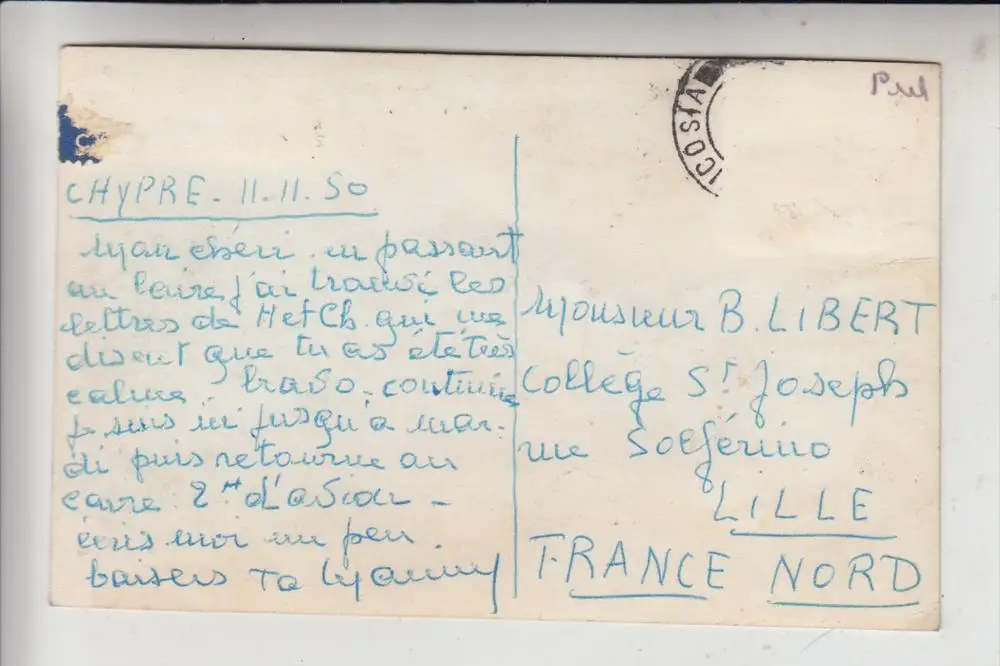 Prul
ICOSIA
CHYPRE - 11.11.50
Mon chéri en passant
au Caire j'ai trouvé les
lettres de H et Ch. qui me
disent que tu as été très
calme. bravo - continue
je suis ici jusqu'à mar-
di puis retourne au
Caire 2 H d'avion -
écris moi un peu.
baisers Ta
Monsieur B. LIBERT
Collège St Joseph
rue Solférino
LILLE
FRANCE NORD